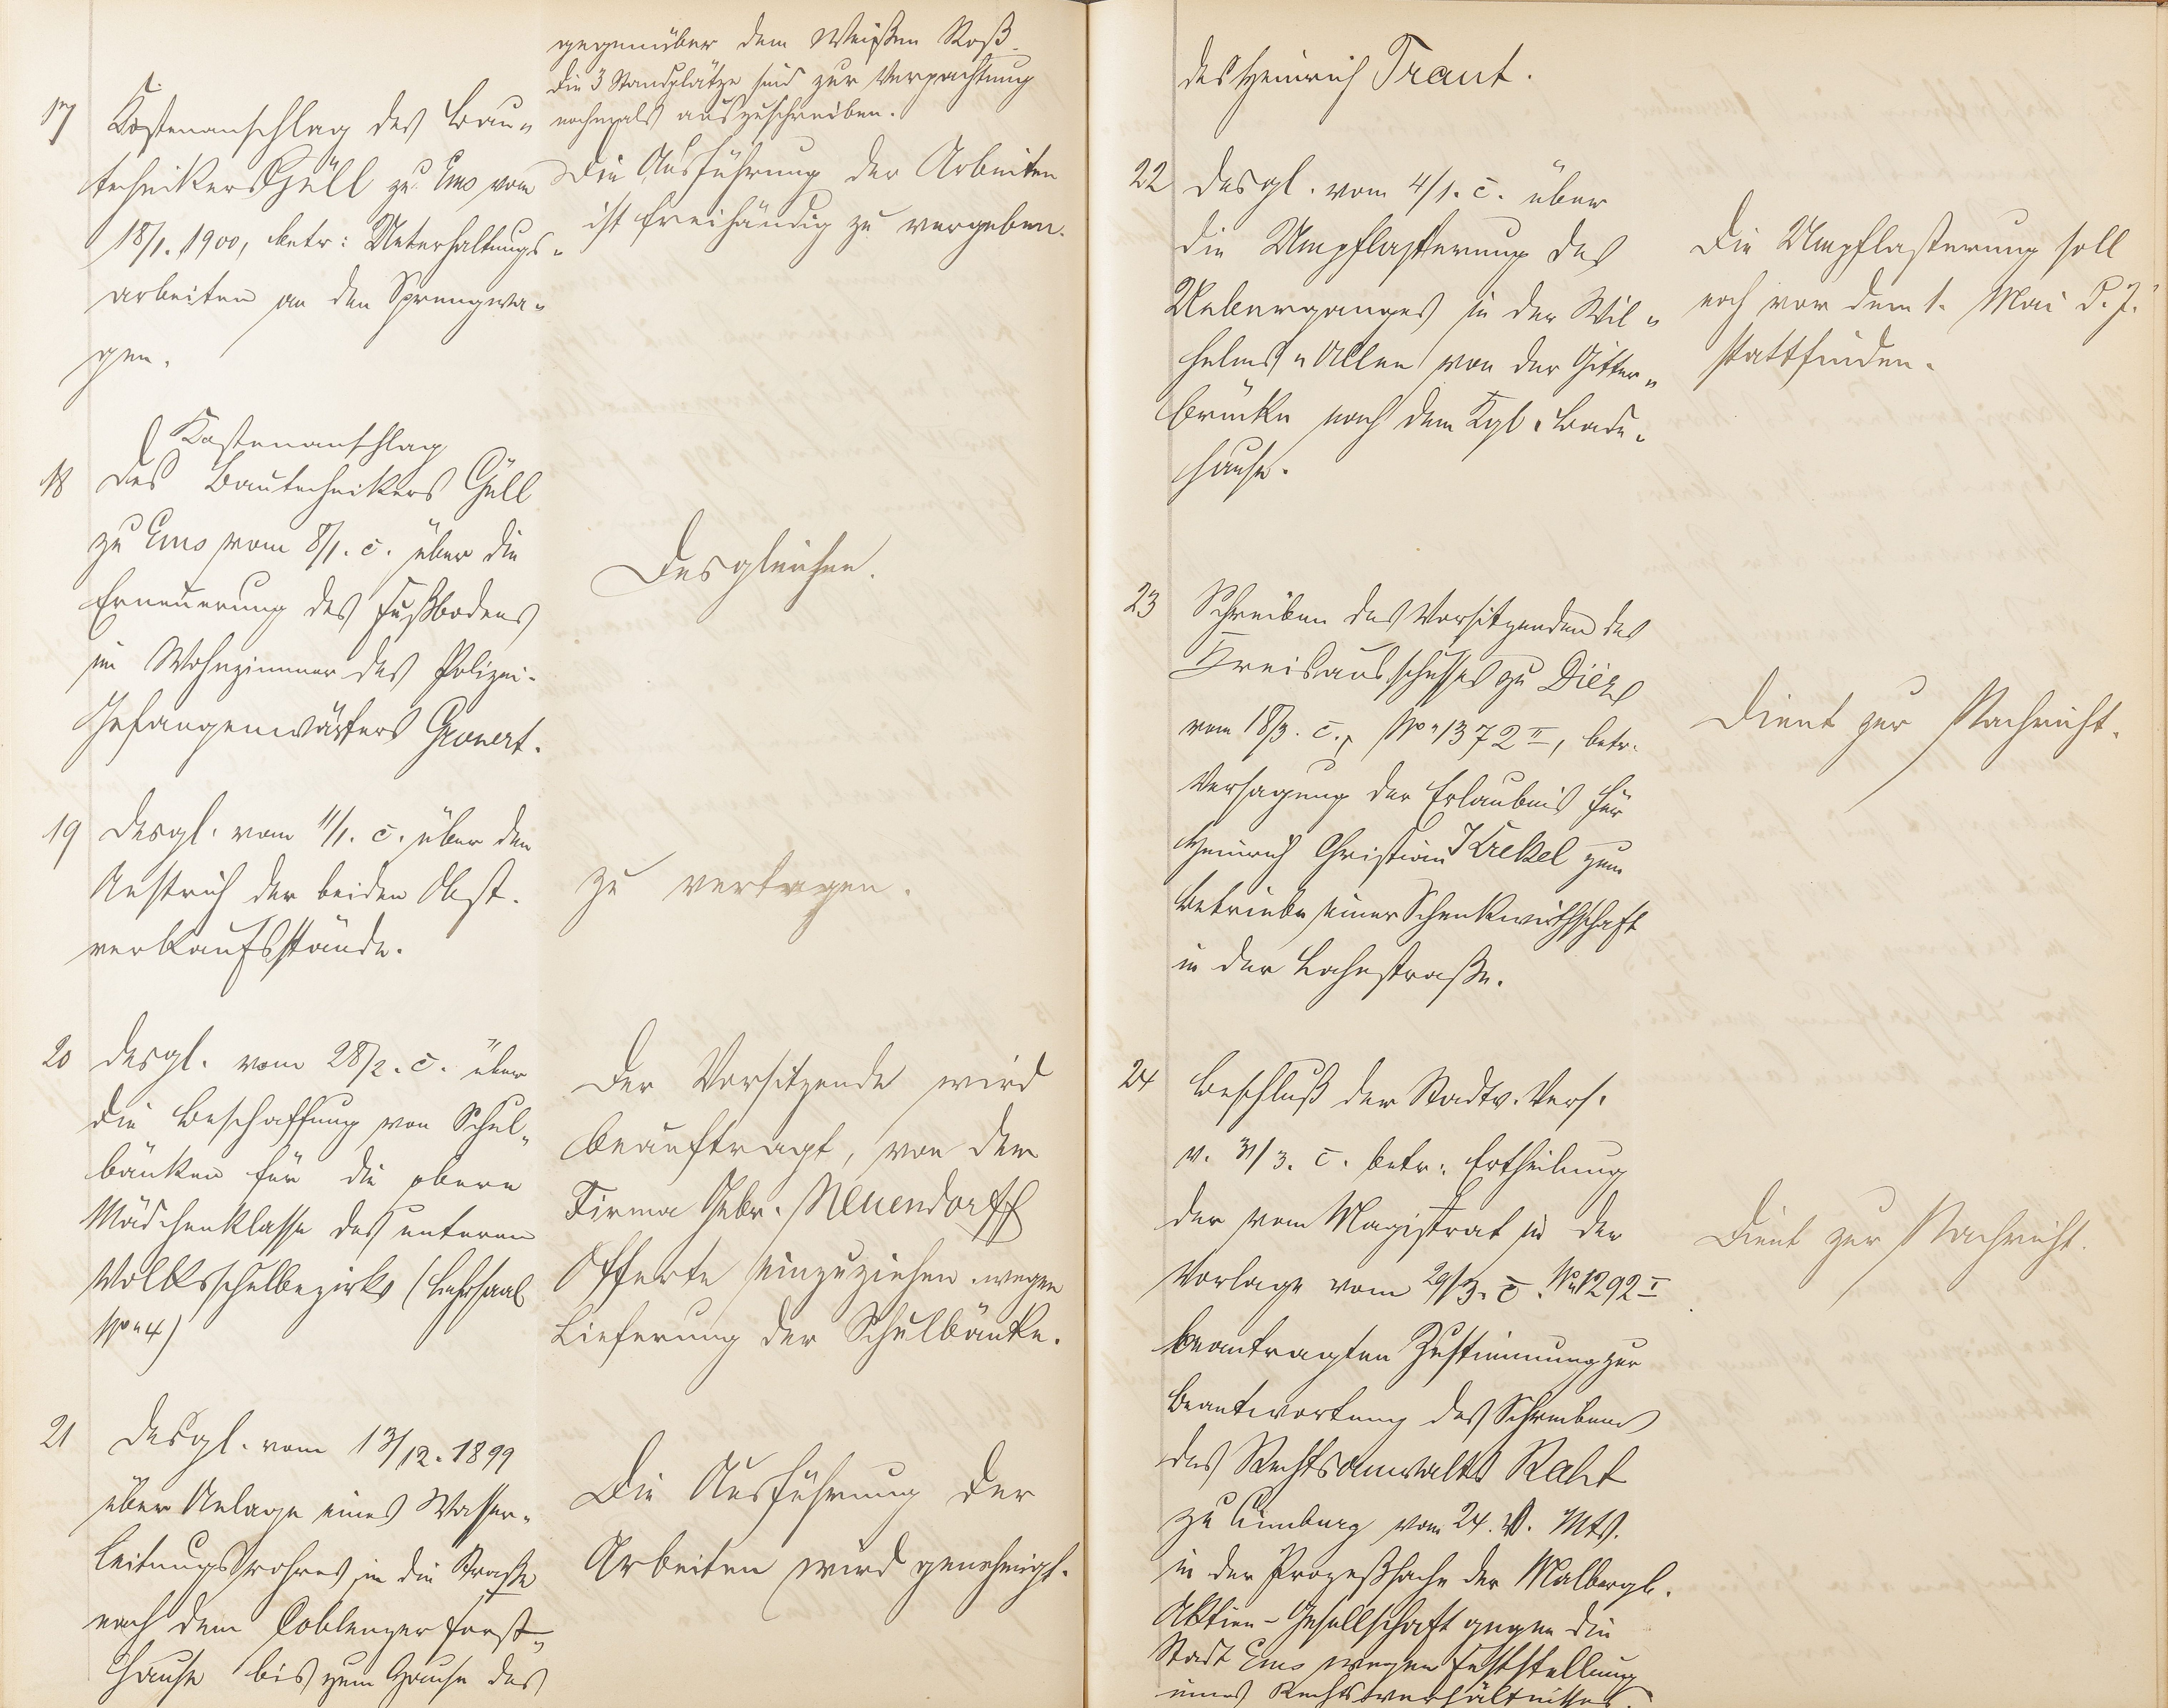 gegenüber dem Weißen Roß.
Die 3 Standplätze sind zur Verpachtung
nochmals auszuschreiben.
17 Kostenanschlag des Bau-
technikers Güll zu Ems vom
18/1. 1900, betr: Unterhaltungs-
arbeiten an den Sprengwa-
gen.
Die Ausführung der Arbeiten
ist freihändig zu vergeben.
Kostenanschlag
18 des Bautechnikers Güll
zu Ems vom 8/1. c. über die
Erneuerung des Fußbodens
im Wohnzimmer des Polizei-
Gefangenwärters Gronert.
Desgleichen.
19 Desgl. vom 11/1. c. über den
Anstrich der beiden Obst-
verkaufsstände.
Zu vertagen.
20 Desgl. vom 28/2. c. über
die Beschaffung von Schul-
bänken für die obere
Mädchenklasse des unteren
Volksschulbezirks (Lehrsaal
No 4)
Der Vorsitzende wird
beauftragt, von der
Firma Gebr. Neuendorff
Offerte einzuziehen wegen
Lieferung der Schulbänke.
21 Desgl. vom 13/12. 1899
über Anlage eines Wasser-
leitungsrohres in die Straße
nach dem Coblenzer Forst-
hause bis zum Hause des
Die Ausführung der
Arbeiten wird genehmigt.
des Heinrich Traut.
22 Desgl. vom 4/1. c. über
die Umpflasterung des
Ueberganges in der Wil-
helms-Allee von der Gitter-
brücke nach dem Kgl. Bade-
hause.
Die Umpflasterung soll
noch vor dem 1. Mai d. J.
stattfinden.
23 Schreiben des Vorsitzenden des
Kreisausschusses zu Diez
vom 18/3. c., No 1372 II, betr.
Versagung der Erlaubnis für
Heinrich Christian Krekel zum
Betriebe einer Schenkwirthschaft
in der Lahnstraße.
Dient zur Nachricht.
24 Beschluß der Stadtv. Vers.
v. 31/3. c. betr. Ertheilung
der vom Magistrat in der
Vorlage vom 29/3. c. No 1292 I
beantragten Zustimmung zur
Beantwortung des Schreibens
des Rechtsanwalts Raht
zu Limburg vom 24. v. Mts.
in der Prozeßsache der Malbergb.
Aktien-Gesellschaft gegen die
Stadt Ems wegen Feststellung
eines Rechtsverhältnisses.
Dient zur Nachricht.